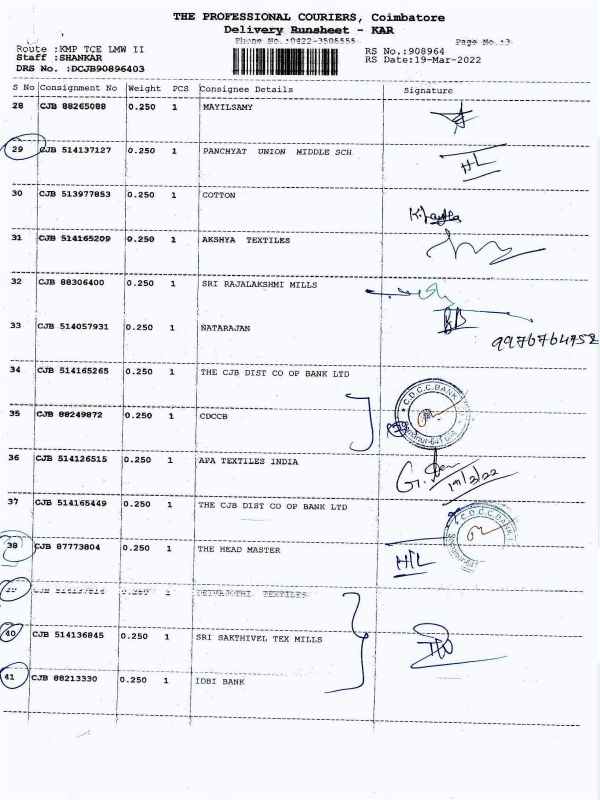 THE PROFESSIONAL COURIERS, Coimbatore
Delivery Runsheet - KAR
Phone No. :0422-3506555 Page No.:3
Route :KMP TCE LMW II RS No.:908964
Staff :SHANKAR RS Date:19-Mar-2022
DRS No. :DCJB90896403
S No Consignment No Weight PCS Consignee Details Signature
28 CJB 88265088 0.250 1 MAYILSAMY
29 CJB 514137127 0.250 1 PANCHYAT UNION MIDDLE SCH HL
30 CJB 513977853 0.250 1 COTTON
31 CJB 514165209 0.250 1 AKSHYA TEXTILES
32 CJB 88306400 0.250 1 SRI RAJALAKSHMI MILLS
33 CJB 514057931 0.250 1 NATARAJAN BB
9976764752
34 CJB 514165265 0.250 1 THE CJB DIST CO OP BANK LTD
C.D.C.C.BANK
35 CJB 88249872 0.250 1 CDCCB
36 CJB 514126515 0.250 1 APA TEXTILES INDIA
19/3/22
37 CJB 514165449 0.250 1 THE CJB DIST CO OP BANK LTD
C.D.C.C.BANK
38 CJB 87773804 0.250 1 THE HEAD MASTER H/L
0.250 1 TEXTILES
40 CJB 514136845 0.250 1 SRI SAKTHIVEL TEX MILLS
41 CJB 88213330 0.250 1 IDBI BANK